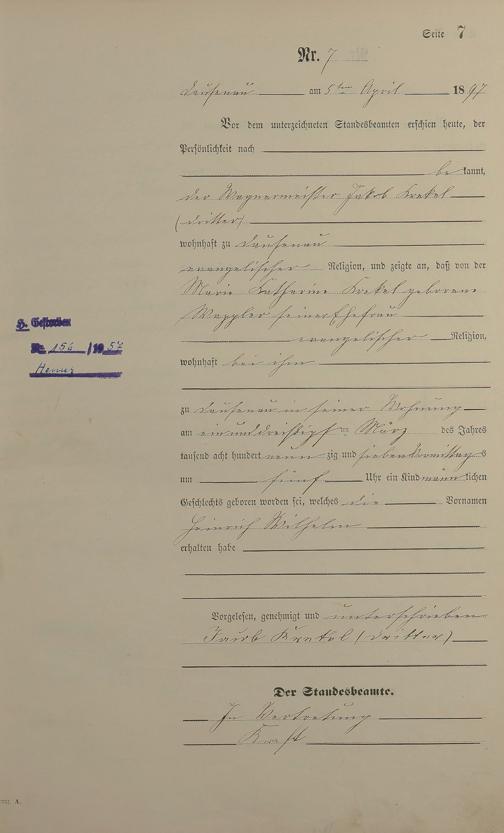 Seite 7
Nr. 7
Dausenau am 5ten April 1897
Vor dem unterzeichneten Standesbeamten erschien heute, der
Persönlichkeit nach
be kannt,
der Wagnermeister Jakob Krekel
(dritter)
wohnhaft zu Dausenau
evangelischer Religion, und zeigte an, daß von der
Marie Katharine Krekel geborene
Wappler seiner Ehefrau
evangelischer Religion,
wohnhaft bei ihm
zu Dausenau in seiner Wohnung
am einunddreißigsten März des Jahres
tausend acht hundert neun zig und sieben Vormittags
um fünf Uhr ein Kind männlichen
Geschlechts geboren worden sei, welches die Vornamen
Heinrich Wilhelm
erhalten habe
Vorgelesen, genehmigt und unterschrieben
Jacob Krekel (dritter)
Der Standesbeamte.
In Vertretung
Kraft
Gestorben
Nr. 156 / 1952